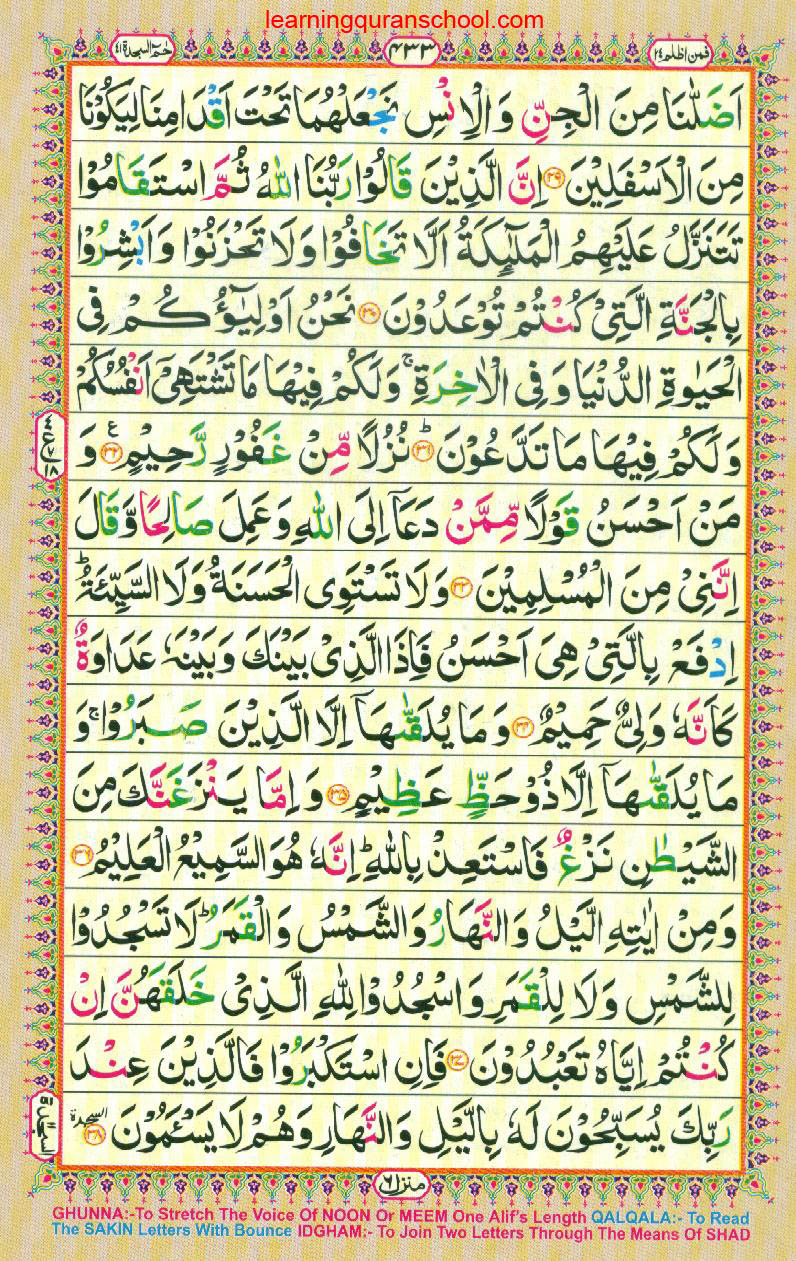 learningquranschool.com
حٰمٓ السجدة ٤١
٤٣٣
فمن اظلم ٢٤
اَضَلّٰنَا مِنَ الْجِنِّ وَالْاِنْسِ نَجْعَلْهُمَا تَحْتَ اَقْدَامِنَا لِيَكُوْنَا
مِنَ الْاَسْفَلِيْنَ ﴿۲۹﴾ اِنَّ الَّذِيْنَ قَالُوْا رَبُّنَا اللّٰهُ ثُمَّ اسْتَقَامُوْا
تَتَنَزَّلُ عَلَيْهِمُ الْمَلٰٓئِكَةُ اَلَّا تَخَافُوْا وَلَا تَحْزَنُوْا وَاَبْشِرُوْا
بِالْجَنَّةِ الَّتِيْ كُنْتُمْ تُوْعَدُوْنَ ﴿۳۰﴾ نَحْنُ اَوْلِيٰٓؤُكُمْ فِى
الْحَيٰوةِ الدُّنْيَا وَفِى الْاٰخِرَةِ ۚ وَلَكُمْ فِيْهَا مَا تَشْتَهِيْٓ اَنْفُسُكُمْ
وَلَكُمْ فِيْهَا مَا تَدَّعُوْنَ ﴿۳۱﴾ؕ نُزُلًا مِّنْ غَفُوْرٍ رَّحِيْمٍ ﴿۳۲﴾ع وَ
مَنْ اَحْسَنُ قَوْلًا مِّمَّنْ دَعَآ اِلَى اللّٰهِ وَعَمِلَ صَالِحًا وَّقَالَ
اِنَّنِيْ مِنَ الْمُسْلِمِيْنَ ﴿۳۳﴾ وَلَا تَسْتَوِى الْحَسَنَةُ وَلَا السَّيِّئَةُ ؕ
اِدْفَعْ بِالَّتِيْ هِيَ اَحْسَنُ فَاِذَا الَّذِيْ بَيْنَكَ وَبَيْنَهٗ عَدَاوَةٌ
كَاَنَّهٗ وَلِيٌّ حَمِيْمٌ ﴿۳۴﴾ وَمَا يُلَقّٰىهَآ اِلَّا الَّذِيْنَ صَبَرُوْا ۚ وَ
مَا يُلَقّٰىهَآ اِلَّا ذُوْ حَظٍّ عَظِيْمٍ ﴿۳۵﴾ وَاِمَّا يَنْزَغَنَّكَ مِنَ
الشَّيْطٰنِ نَزْغٌ فَاسْتَعِذْ بِاللّٰهِ ؕ اِنَّهٗ هُوَ السَّمِيْعُ الْعَلِيْمُ ﴿۳۶﴾
وَمِنْ اٰيٰتِهِ الَّيْلُ وَالنَّهَارُ وَالشَّمْسُ وَالْقَمَرُ ؕ لَا تَسْجُدُوْا
لِلشَّمْسِ وَلَا لِلْقَمَرِ وَاسْجُدُوْا لِلّٰهِ الَّذِيْ خَلَقَهُنَّ اِنْ
كُنْتُمْ اِيَّاهُ تَعْبُدُوْنَ ﴿۳۷﴾ فَاِنِ اسْتَكْبَرُوْا فَالَّذِيْنَ عِنْدَ
رَبِّكَ يُسَبِّحُوْنَ لَهٗ بِالَّيْلِ وَالنَّهَارِ وَهُمْ لَا يَسْـَٔمُوْنَ ﴿۳۸﴾ السجدة
السجدة
منزل ٦
GHUNNA:-To Stretch The Voice Of NOON Or MEEM One Alif's Length QALQALA:- To Read
The SAKIN Letters With Bounce IDGHAM:- To Join Two Letters Through The Means Of SHAD